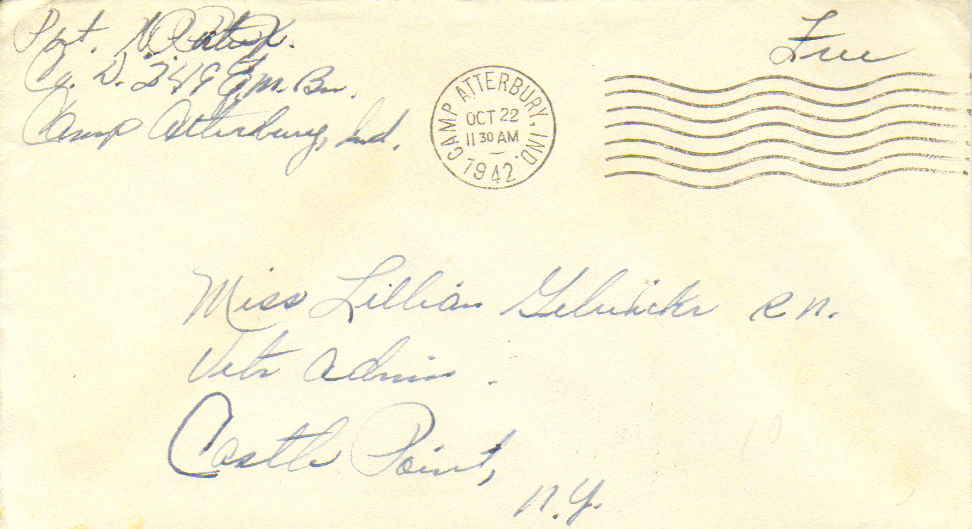 Pvt.
Co. D. 349 Bn.
Camp Atterbury, Ind.
Free
CAMP ATTERBURY, IND.
OCT 22
11 30 AM
1942
Miss Lillian R.N.
Vets Admin.
Castle Point,
N.Y.